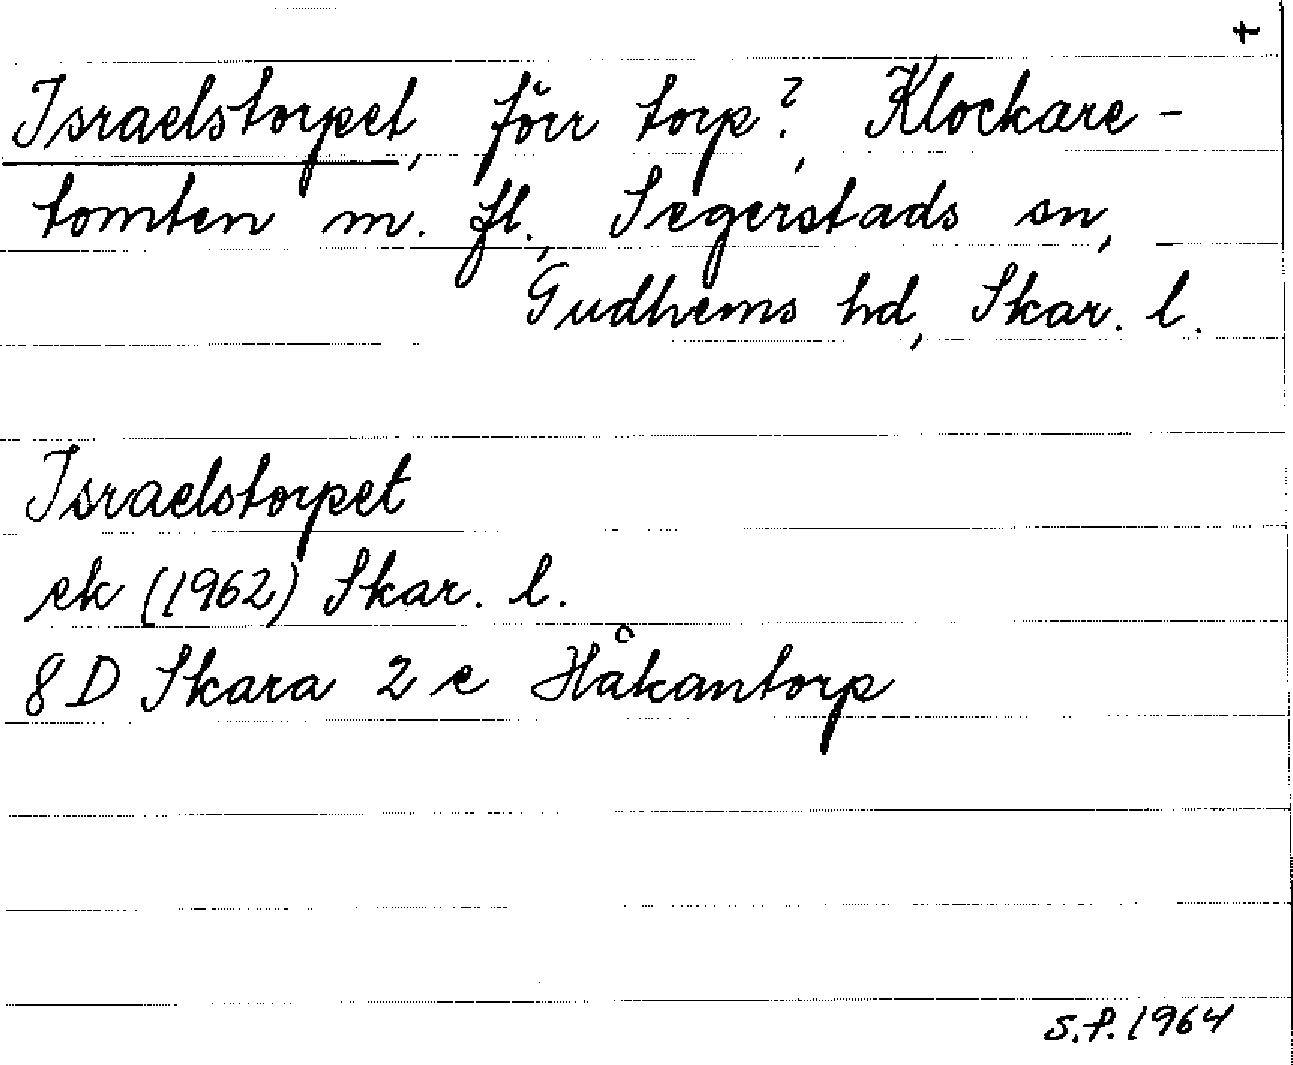 t
Israelstorpet, förr torp?, Klockare-
tomten m. fl., Segerstads sn,
Gudhems hd, Skar. l.
Israelstorpet
ek (1962) Skar. l.
8 D Skara 2 e Håkantorp
S.P. 1964